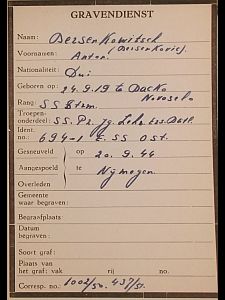 GRAVENDIENST
Naam: Dersenkowitsch
Voornamen: Anton. (Deisenkovic).
Nationaliteit: Dui
Geboren op: 24.9.19 te Dacko
Novoselo
Rang: SS Strm.
Troepen-
onderdeel: SS. Pz. Jg. Lehr
Ident.
no.: 694-1 E. SS Ost.
Gesneuveld op 20.9.44
Aangespoeld te Nijmegen
Overleden
Gemeente
waar begraven:
Begraafplaats:
Datum
begraven:
Soort graf:
Plaats van
het graf: vak rij no.
Corresp. no.: 1002/50. 437/51.